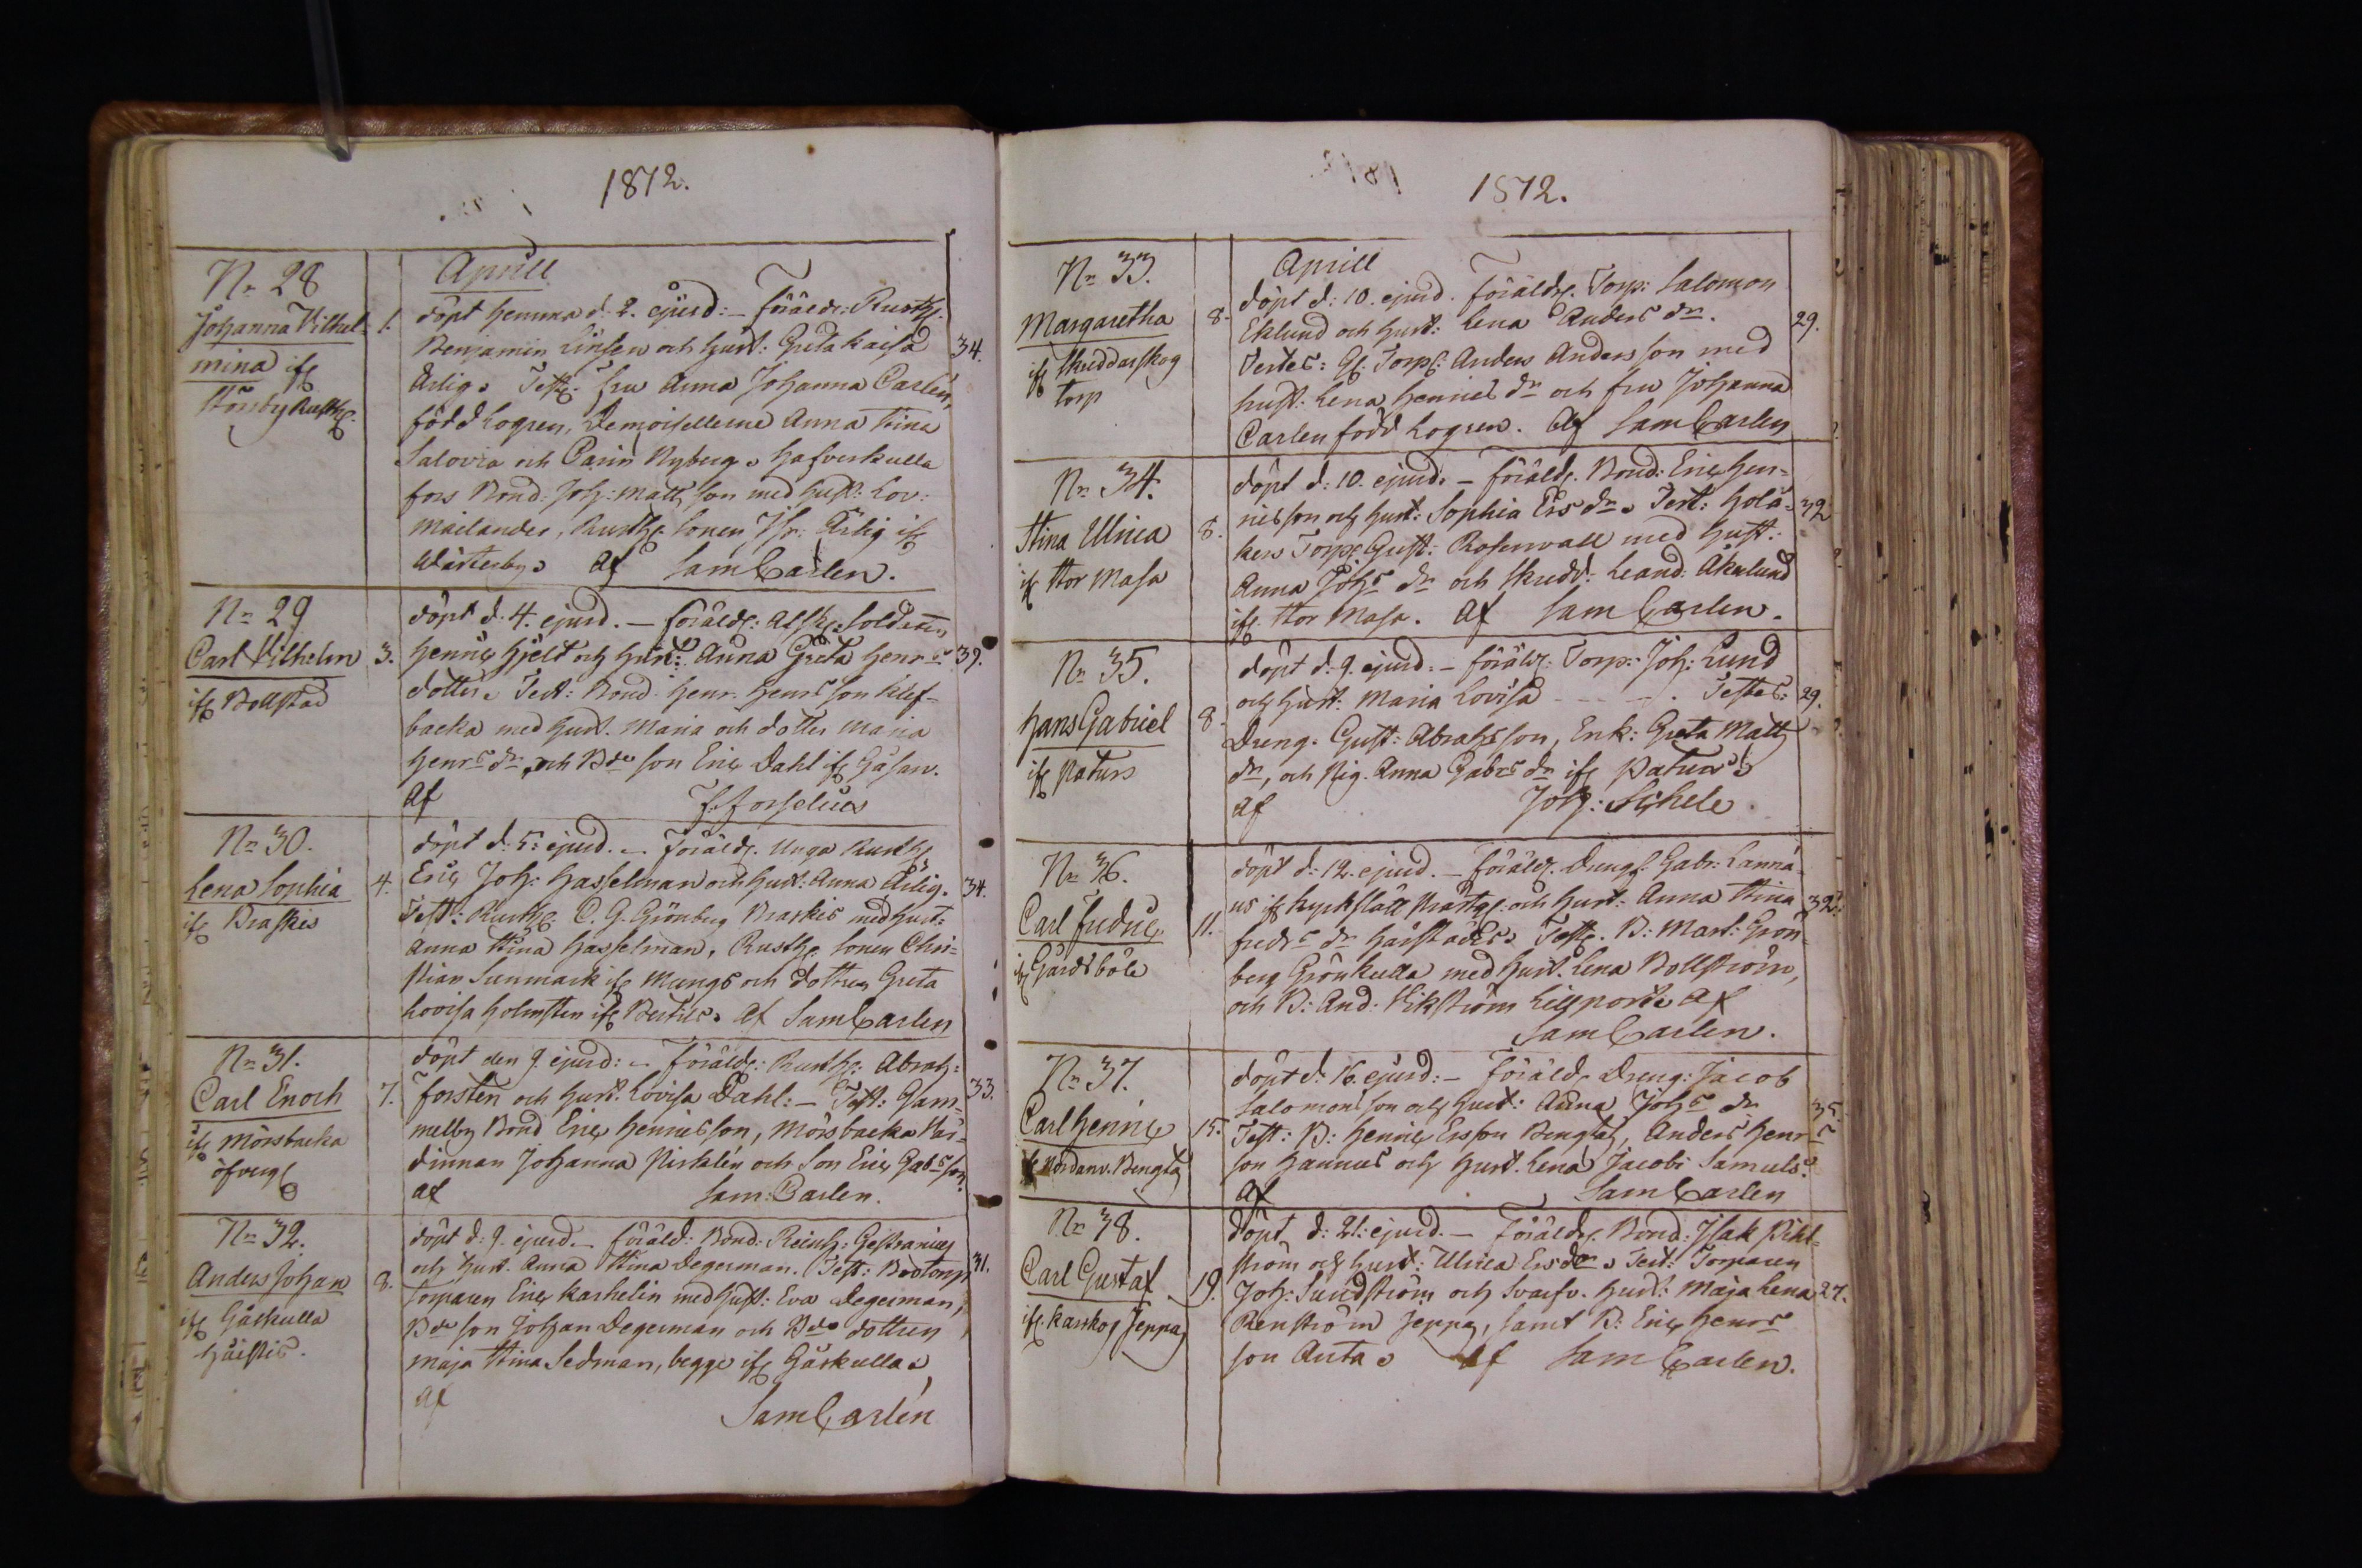 1812.
Aprill
Nr 28
Johanna Vilhel-
mina ifr
Störsby Rusth.
1.
döpt hemma d. 2. ejusd: – Föräldr: Rusth.
Benjamin Linsen och hust: Greta Caisa
Ärlig. Test: Fru Anna Johanna Carlén,
född Logren, Demoisellerne Anna Stina
Salovia och Carin Nyberg. Hafverkulla
fors Bond: Joh: Matts son med hust: Lov:
Mailander, Rusth. sonen Ish. Ärlig ifr
Wästerby. Af Sam Carlen.
34.
Nr 29
Carl Vilhelm
ifr Bollstad
3.
döpt d. 4. ejusd. – Föräldr: Afsk. Soldaten
Henric Hjelt och hust: Anna Greta Henrs
dotter. Test: Bond. Henr. Henrs son Klef-
backa med hust. Maria och dotter Maria
Henrs dr, och Bde son Eric Dahl ifr Gåsarv.
Af F. Forselius
39.
Nr 30.
Lena Sophia
ifr Braskis
4.
döpt d: 5: ejusd. – Föräldr. Unga Rusth.
Eric Joh: Hasselman och hust: Anna Ärlig.
Test: Rusth. C. G. Grönberg Braskis med hust:
Anna Stina Hasselman, Rusth. sonen Chri-
stian Sunmark ifr Mungs och dottren Greta
Lovisa Holmsten ifr Bertils. Af Sam Carlen
34.
Nr 31.
Carl Enoch
ifr Mörsbacka
öfverg
7.
döpt den 9. ejusd: – Föräldr: Rusth: Abrah:
Forsten och hust. Lovisa Dahl: – Test: Gam-
melby Bond Eric Henrics son, Mörsbacka Vär-
dinnan Johanna Nisklén och Son Eric Gabrs son.
af Sam: Carlen.
33.
Nr 32.
Anders Johan
ifr Gåskulla
Häistis.
8.
döpt d: 9. ejusd. – Föräld: Bond: Reinh: Gestranius
och hust. Anna Stina Degerman. Test: Bodtorp
torparen Eric Karhelin med hust: Eva Degerman,
Bde son Johan Degerman och Bde dottren
Maja Stina Sedman, begge ifr Gåskulla,
af Sam Carlén
31.
1812.
Aprill
Nr 33.
Margaretha
ifr Skreddarskog
torp
8.
döpt d: 10. ejusd. Föräldr. Torp: Salomon
Eklund och hust: Lena Anders dr.
Testes: Gl. Torp: Anders Anders son med
hust: Lena Henrics dr och fru Johanna
Carlen född Logren. Af Sam Carlen
29.
Nr 34.
Stina Ulrica
ifr Stor Masa
8.
döpt d: 10. ejusd. – Föräldr. Bond: Eric Hen-
rics son och hust: Sophia Ers dr. Test: Holå-
kers Torp. Gust: Rosenvall med hust:
Anna Johs dr och Skredd: Leand: Åkerlund
ifr Stor Masa. Af Sam Carlen.
32
Nr 35.
Hans Gabriel
ifr Paturs
8.
döpt d. 9. ejusd. – Föräldr: Torp: Joh: Lund
och hust: Maria Lovisa - - - . Testes:
Dreng. Gust: Abrahs son, Enk: Greta Matts
dr, och Pig. Anna Gabrs dr ifr Paturs
af Joh: Sihele
29.
Nr 36.
Carl Fredric
ifr Gårdsböle
11.
döpt d: 12. ejusd. – Föräldr. Dreng: Gabr: Lannä-
us ifr Kyrkslätt Prästg. och hust: Anna Stina
Fredrs dr Häistädis. Test. B: Mart: Grön-
berg Grönkulla med hust. Lena Bollström,
och B: And: Vikström Lillports Af
Sam Carlen.
32.
Nr 37.
Carl Henric
ifr Nordanv. Bengts
15.
döpt d: 16. ejusd: – Föräldr. Dreng: Jacob
Salomons son och hust: Anna Johs dr
Test: B: Henric Ersson Bengts, Anders Henrs
son Hannus och hust. Lena Jacobs Samuels.
Af Sam Carlen
35.
Nr 38.
Carl Gustaf
ifr Karskog Jeppas
19.
Döpt d: 21: ejusd. – Föräldr. Bond: Isak Pihl-
ström och hust: Ulrica Ers dr. Test: Torparen
Joh: Sundström och Svarfv. hust: Maja Lena
Renström Jeppas, samt B: Eric Henrs
son Anta. Af Sam Carlen.
27.